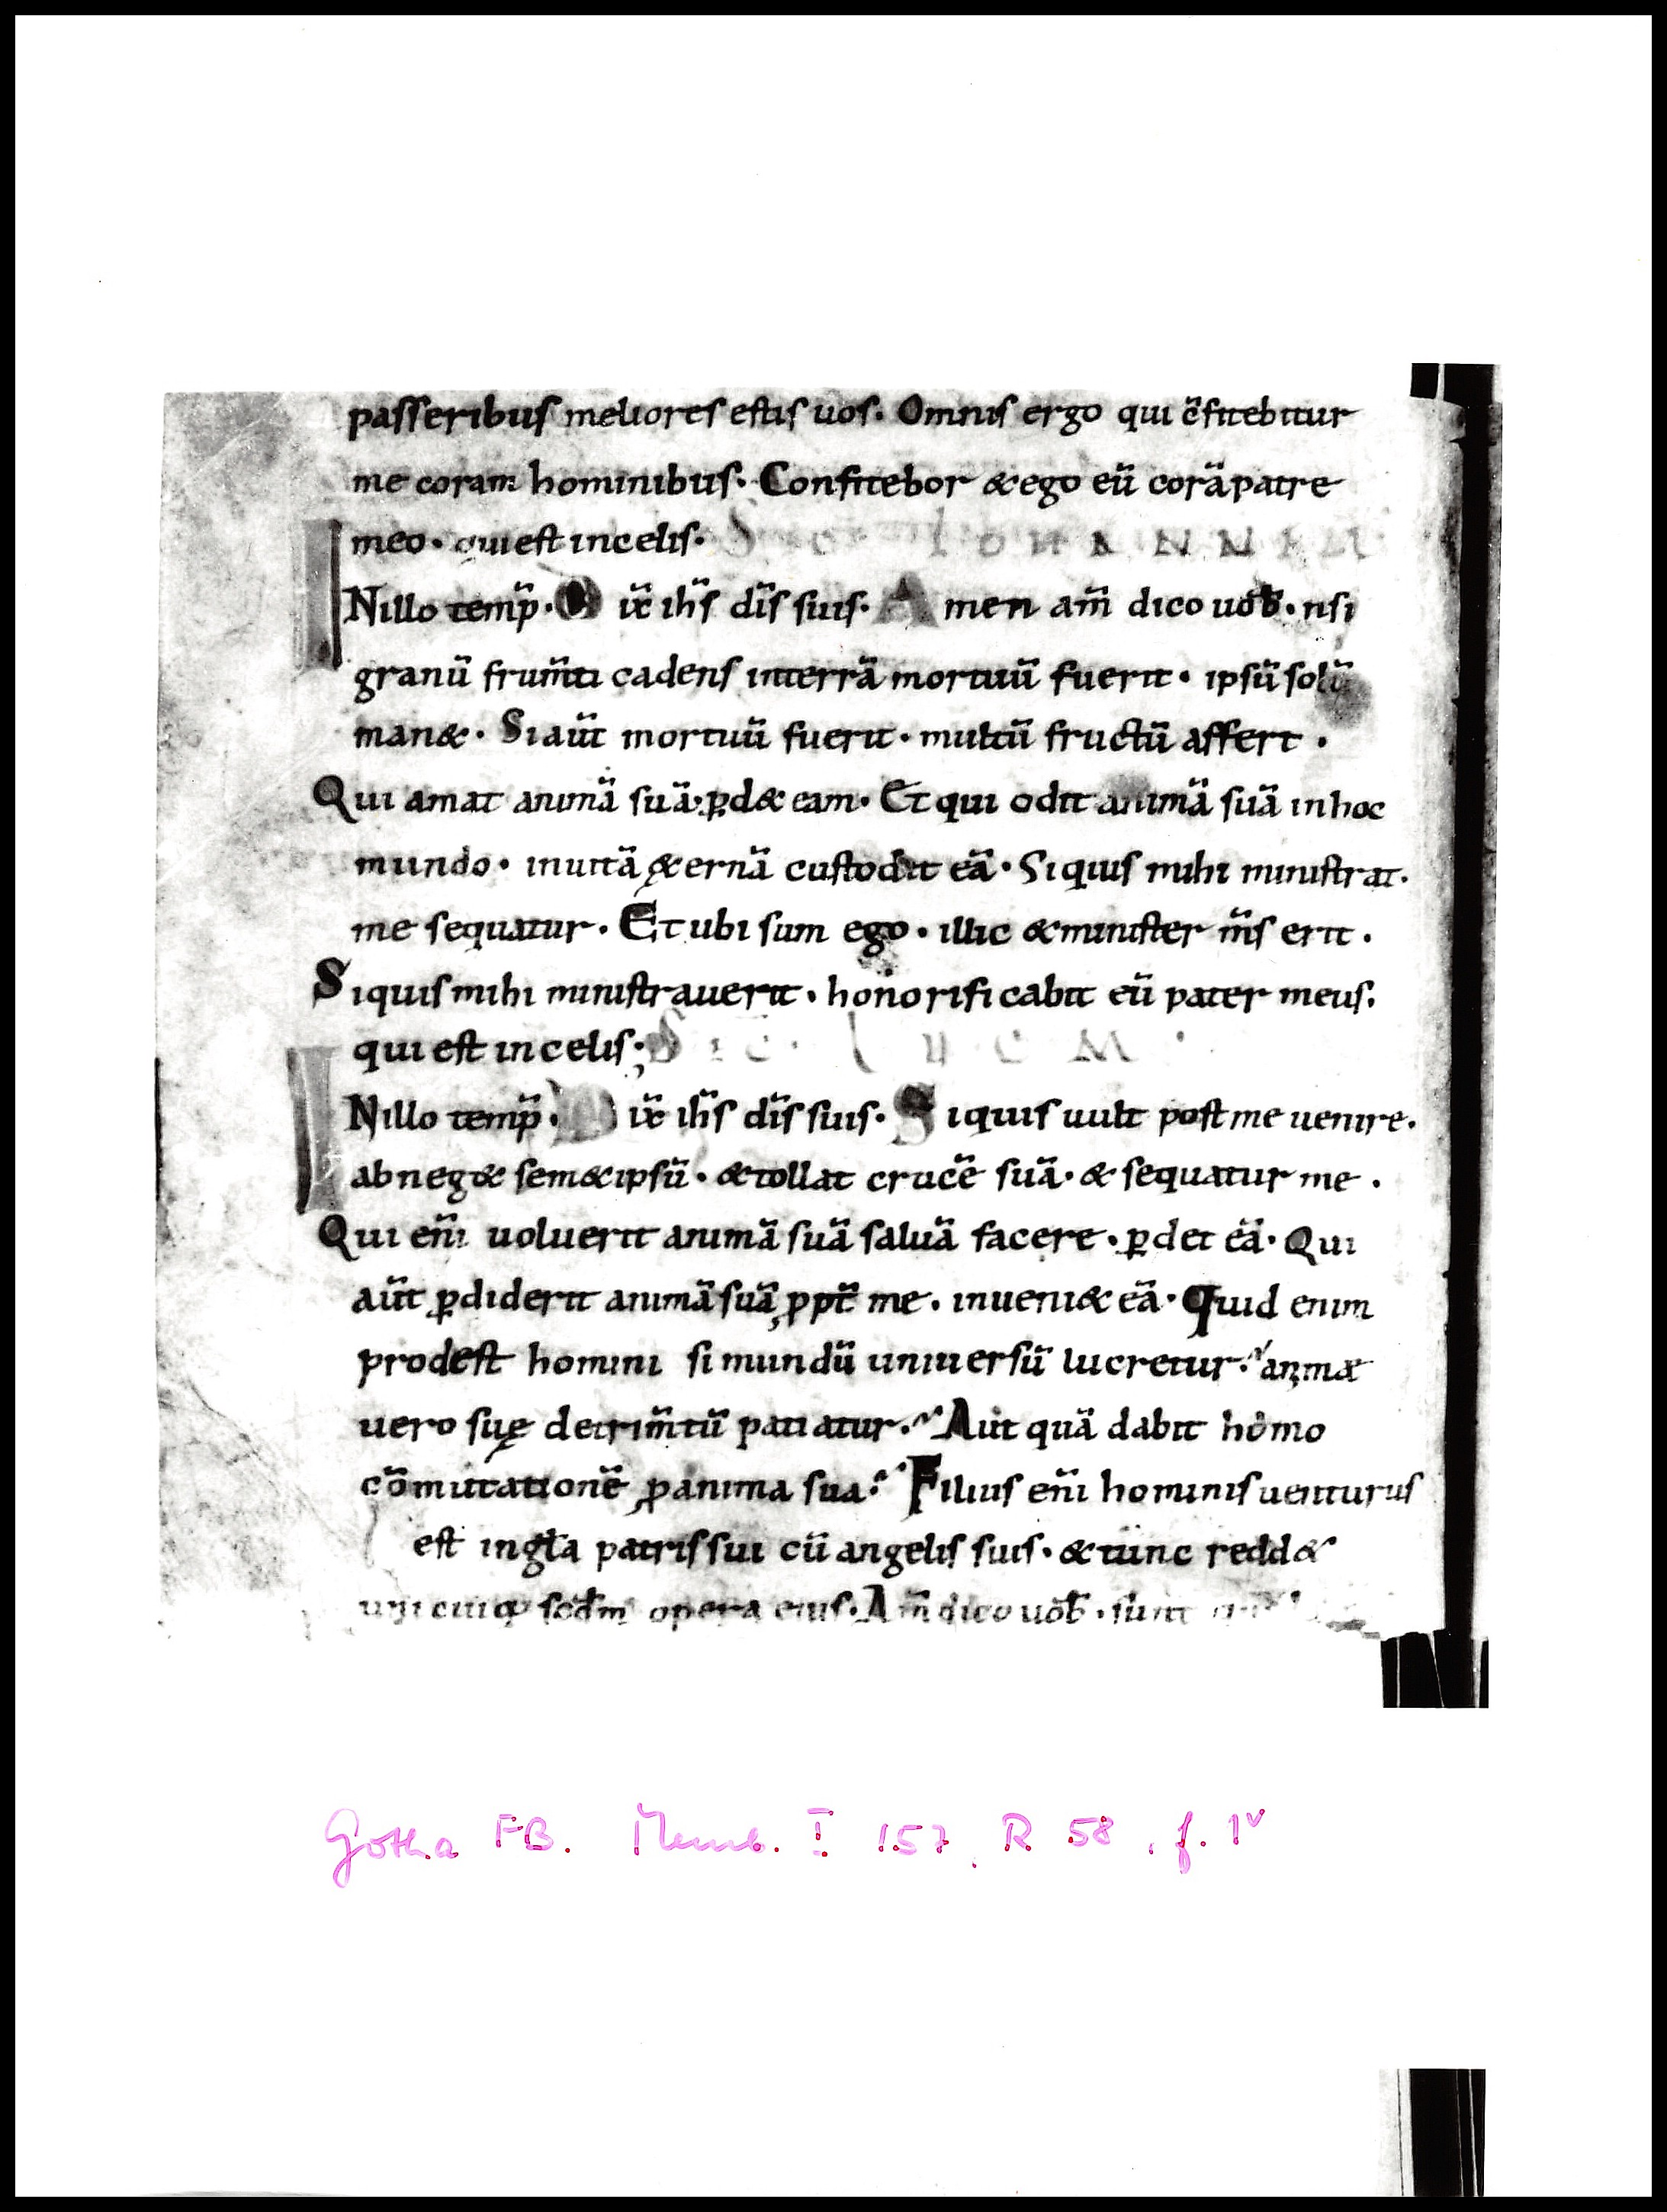 passeribus meliores estis uos. Omnis ergo qui c̄fitebitur
me coram hominibus. Confitebor & ego eū corā patre
meo. qui est in celis. Sec IOHANNEM
INillo temp̄. Dix̄ ih̄s dīs suis. Amen am̄ dico uob̄. nsi
granū frum̄ti cadens in terrā mortuū fuerit. ipsū solū
man&. Si aūt mortuū fuerit. multū fructū affert.
Qui amat animā suā. ꝑd& eam. Et qui odit animā suā in hoc
mundo. in uitā ę&ernā custodit eā. Si quis mihi ministrat.
me sequatur. Et ubi sum ego. illic & minister m̄s erit.
Si quis mihi ministrauerit. honorificabit eū pater meus.
qui est in celis; Sec. Lucm.
INillo temp̄. Dix̄ ih̄s dīs suis. Si quis uult post me uenire.
abneg& sem&ipsū. & tollat crucē suā. & sequatur me.
Qui em̄ uoluerit animā suā saluā facere. ꝑdet eā. Qui
aūt ꝑdiderit animā suā ꝓpt̄ me. inueni& eā. Quid enim
prodest homini si mundū uniuersū lucretur. animæ
uero suę detrim̄tū patiatur. Aut quā dabit homo
cōmutationē ꝓ anima sua. Filius em̄ hominis uenturus
est in gl̄a patris sui cū angelis suis. & tunc redd&
unicuiq; scd̄m opera eius. Am̄ dico uob̄. sunt
Gotha FB. Memb. I 157, R 58, f. 1v